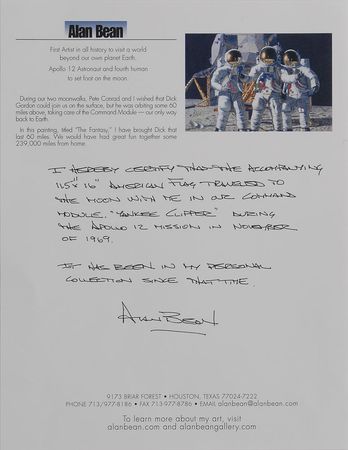 Alan Bean
First Artist in all history to visit a world
beyond our own planet Earth.
Apollo 12 Astronaut and fourth human
to set foot on the moon.
During our two moonwalks, Pete Conrad and I wished that Dick
Gordon could join us on the surface, but he was orbiting some 60
miles above, taking care of the Command Module — our only way
back to Earth.
In this painting, titled "The Fantasy," I have brought Dick that
last 60 miles. We would have had great fun together some
239,000 miles from home.
I HEREBY CERTIFY THAT THE ACCOMPANYING
11.5" x 16" AMERICAN FLAG TRAVELED TO
THE MOON WITH ME IN OUR COMMAND
MODULE, "YANKEE CLIPPER" DURING
THE APOLLO 12 MISSION IN NOVEMBER
OF 1969.
IT HAS BEEN IN MY PERSONAL
COLLECTION SINCE THAT TIME.
ALAN BEAN
9173 BRIAR FOREST • HOUSTON, TEXAS 77024-7222
PHONE 713/977-8186 • FAX 713-977-8786 • EMAIL alanbean@alanbean.com
To learn more about my art, visit
alanbean.com and alanbeangallery.com